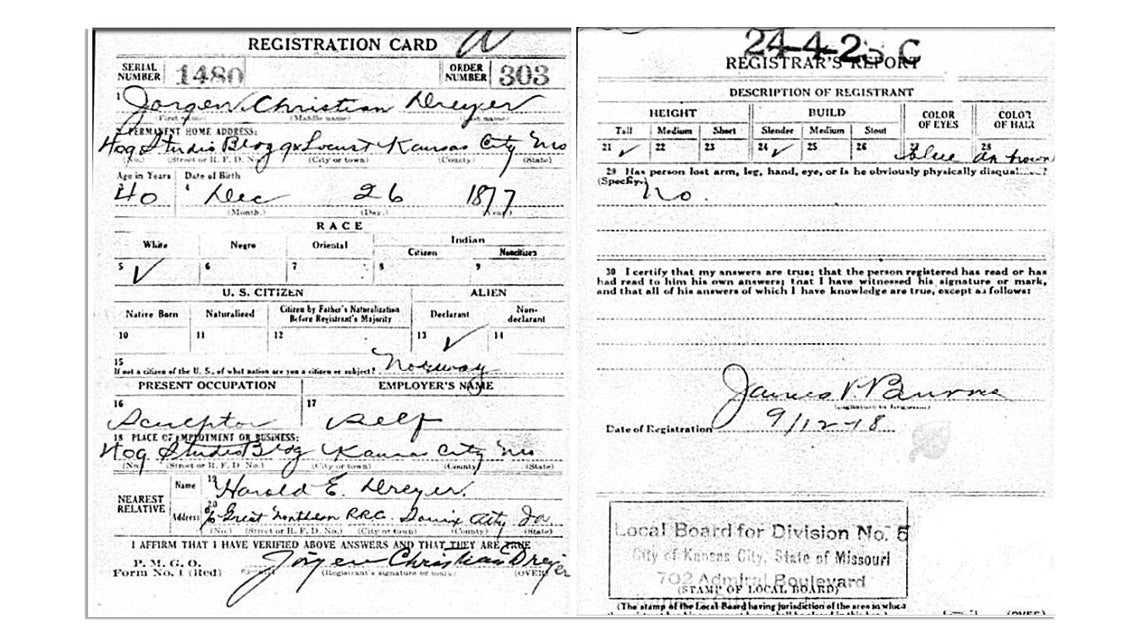 REGISTRATION CARD
SERIAL NUMBER 1480 ORDER NUMBER 303
1 Jorgen Christian Dreyer
(First name) (Middle name) (Last name)
2 PERMANENT HOME ADDRESS:
409 Studio Bldg 9x Locust Kansas City Mo
(No.) (Street or R. F. D. No.) (City or town) (County) (State)
Age in Years Date of Birth
3 40 4 Dec 26 1877
(Month.) (Day.) (Year.)
RACE
White Negro Oriental Indian
Citizen Noncitizen
5 ✓ 6 7 8 9
U. S. CITIZEN ALIEN
Native Born Naturalized Citizen by Father's Naturalization Before Registrant's Majority Declarant Non-declarant
10 11 12 13 ✓ 14
15
If not a citizen of the U. S., of what nation are you a citizen or subject? Norway
PRESENT OCCUPATION EMPLOYER'S NAME
16 Sculptor 17 Self
18 PLACE OF EMPLOYMENT OR BUSINESS:
409 Studio Bldg Kansas City Mo
(No.) (Street or R. F. D. No.) (City or town) (County) (State)
NEAREST RELATIVE
Name 19 Harold E. Dreyer.
Address 20 c/o Great Northern R.R.C. Souix City Ia
(No.) (Street or R. F. D. No.) (City or town) (County) (State)
I AFFIRM THAT I HAVE VERIFIED ABOVE ANSWERS AND THAT THEY ARE TRUE
P. M. G. O.
Form No. 1 (Red) Jörgen Christian Dreyer
(Registrant's signature or mark) (OVER)
24-4-23 C
REGISTRAR'S REPORT
DESCRIPTION OF REGISTRANT
HEIGHT BUILD COLOR OF EYES COLOR OF HAIR
Tall Medium Short Slender Medium Stout
21 ✓ 22 23 24 ✓ 25 26 Blue 28 dk brown
29 Has person lost arm, leg, hand, eye, or is he obviously physically disqual...?
(Specify.) No.
30 I certify that my answers are true; that the person registered has read or has
had read to him his own answers; that I have witnessed his signature or mark,
and that all of his answers of which I have knowledge are true, except as follows:
James P. Burns
Date of Registration 9/12-18
Local Board for Division No. 5
City of Kansas City, State of Missouri
702 Admiral Boulevard
(STAMP OF LOCAL BOARD)
(The stamp of the Local Board having jurisdiction of the area in which
(OVER)